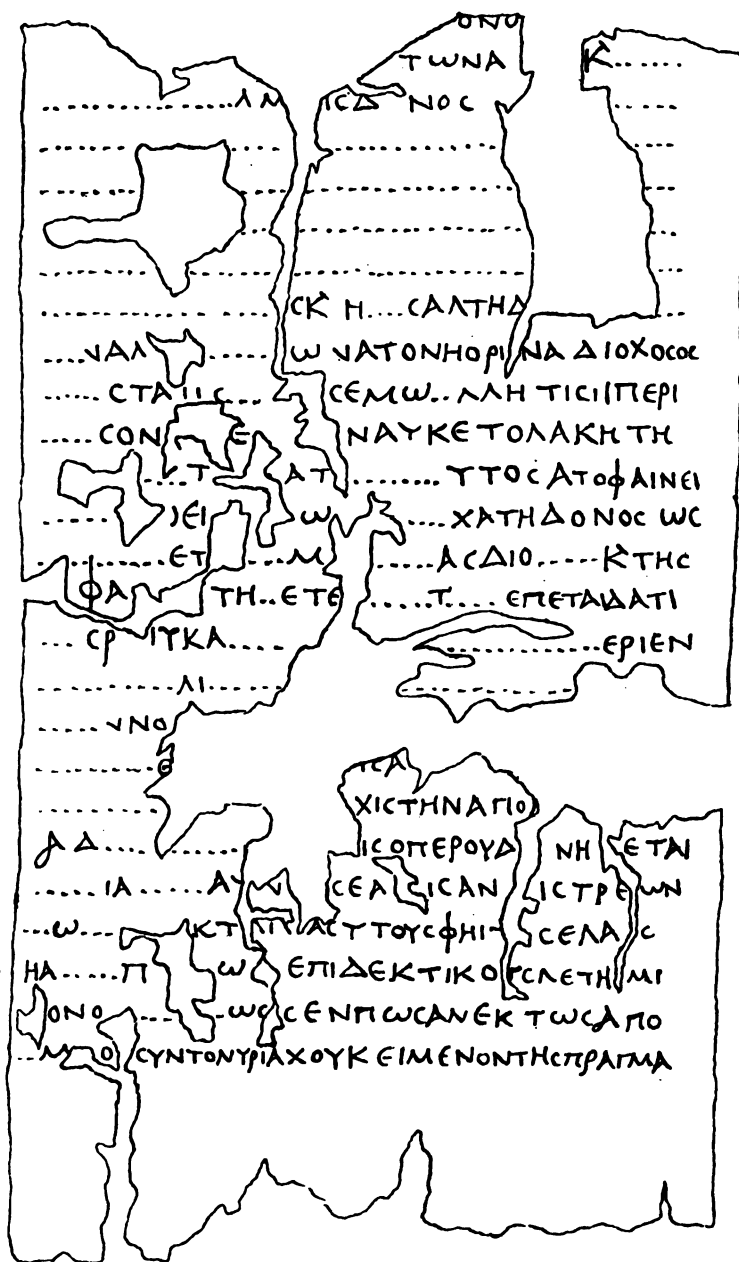 ΟΝΟ
ΤΩΝΑ Κ......
ΛΜ ΙϹΔ ΝΟϹ
ϹΚ Η....ϹΑΛΤΗΔ
....ΝΑΛ ...... Ω ΝΑΤΟΝΗΟΡΙ ΝΑ ΔΙΟΧΟϹΟϹ
..... ϹΤΑ ... ϹΕΜΩ..ΛΛΗ ΤΙϹΙ ΠΕΡΙ
.....ϹΟΝ Ε ΝΑΥΚΕΤΟΛΑΚΗ ΤΗ
Τ ΑΤ ......... ΥΤΟϹΑΤΟΦΑΙΝΕΙ
...... ΕΙ Ω .... ΧΑΤΗΔΟΝΟϹ ΩϹ
ΕΤ ... Μ ...... ΑϹΔΙΟ.....ΚΤΗϹ
ΦΑ ΤΗ..ΕΤΕ .....Τ.... ΕΠΕΤΑΙΔΑΤΙ
... ϹΡ ΙΥΚΑ..... ΕΡΙΕΝ
ΛΙ
.... ΝΝΟ
Ε ΙϹΑ
ΧΙϹΤΗΝΑΠΟ
ΑΔ ΙϹΟΠΕΡΟΥΔ ΝΗ ΕΤΑΙ
.....ΙΑ.....ΑΥ ϹΕΑ ϹΙϹΑΝ ΙϹΤΡΕΩΝ
...Ω.....ΚΤ ΑϹΥΤΟΥϹΦΗΙ ϹΕΛΑ Ϲ
ΗΑ.....Π Ω ΕΠΙΔΕΚΤΙΚΟΥϹΛΕΤΗ ΜΙ
ΟΝΟ ΩϹ ϹΕΝΠΩϹΑΝΕΚΤΩϹΑΠΟ
..Μ Ο ϹΥΝΤΟΝΥΡΙΑΧΟΥΚΕΙΜΕΝΟΝΤΗϹΠΡΑΓΜΑ